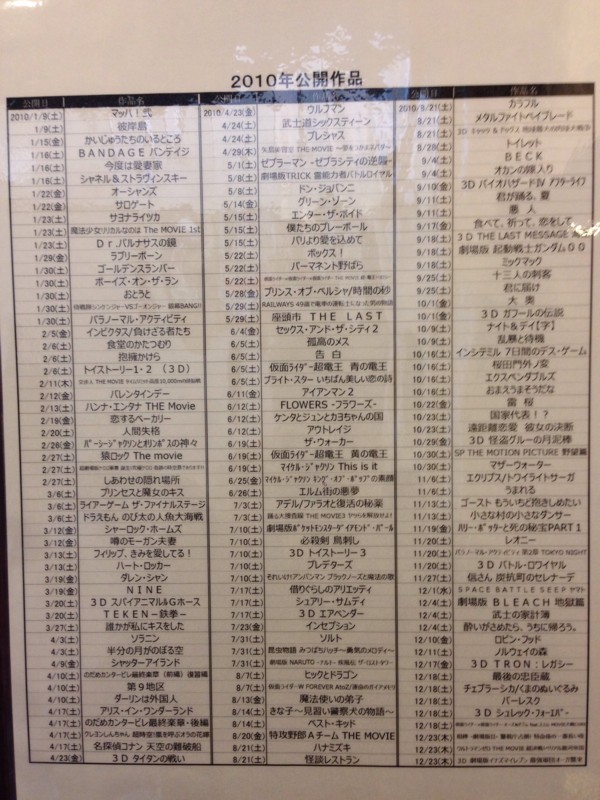 2010年公開作品
公開日 作品名
2010/1/9(土) マッハ!弐
1/9(土) 彼岸島
1/15(金) かいじゅうたちのいるところ
1/16(土) BANDAGE バンデイジ
1/16(土) 今度は愛妻家
1/16(土) シャネル&ストラヴィンスキー
1/22(金) オーシャンズ
1/22(金) サロゲート
1/23(土) サヨナライツカ
1/23(土) 魔法少女リリカルなのは The MOVIE 1st
1/23(土) Dr.パルナサスの鏡
1/29(金) ラブリーボーン
1/30(土) ゴールデンスランバー
1/30(土) ボーイズ・オン・ザ・ラン
1/30(土) おとうと
1/30(土)
1/30(土) パラノーマル・アクティビティ
2/5(金) インビクタス/負けざる者たち
2/6(土) 食堂のかたつむり
2/6(土) 抱擁かけら
2/6(土) トイストーリー1・2 (3D)
2/11(木)
2/12(金) バレンタインデー
2/13(土) ハンナ・モンタナ THE Movie
2/19(金) 恋するベーカリー
2/20(土) 人間失格
2/26(金) パーシージャクソンとオリンポスの神々
2/27(土) 猿ロック The movie
2/27(土)
2/27(土) しあわせの隠れ場所
3/6(土) プリンセスと魔女のキス
3/6(土) ライアーゲーム ザ・ファイナルステージ
3/6(土) ドラえもん のび太の人魚大海戦
3/12(金) シャーロック・ホームズ
3/12(金) 噂のモーガン夫妻
3/13(土) フィリップ、きみを愛してる!
3/13(土) ハート・ロッカー
3/19(金) ダレン・シャン
3/19(金) NINE
3/20(土) 3D スパイアニマル&Gホース
3/20(土) TEKEN~鉄拳~
3/27(土) 誰かが私にキスをした
4/3(土) ソラニン
4/3(土) 半分の月がのぼる空
4/9(金) シャッターアイランド
4/10(土) のだめカンタービレ最終楽章(前編)復習編
4/10(土) 第9地区
4/10(土) ダーリンは外国人
4/17(土) アリス・イン・ワンダーランド
4/17(土) のだめカンタービレ最終楽章・後編
4/17(土) クレヨンしんちゃん 超時空!嵐を呼ぶオラの花嫁
4/17(土) 名探偵コナン 天空の難破船
4/23(金) 3D タイタンの戦い
2010/4/23(金) ウルフマン
4/24(土) 武士道シックスティーン
4/24(土) プレシャス
4/29(木)
5/1(土) ゼブラーマン -ゼブラシティの逆襲-
5/8(土) 劇場版TRICK 霊能力者バトルロイヤル
5/8(土) ドン・ジョバンニ
5/14(金) グリーン・ゾーン
5/15(土) エンター・ザ・ボイド
5/15(土) 僕たちのプレーボール
5/15(土) パリより愛を込めて
5/22(土) ボックス!
5/22(土) パーマネント野ばら
5/22(土)
5/28(金) プリンス・オブ・ペルシャ/時間の砂
5/29(土) RAILWAYS 49歳で電車の運転士になった男の物語
5/29(土) 座頭市 THE LAST
6/4(金) セックス・アンド・ザ・シティ2
6/5(土) 孤高のメス
6/5(土) 告白
6/5(土) 仮面ライダー超電王 青の電王
6/5(土) ブライト・スター いちばん美しい恋の詩
6/11(金) アイアンマン2
6/12(土) FLOWERS -フラワーズ-
6/12(土) ケンタとジュンとカヨちゃんの国
6/12(土) アウトレイジ
6/19(土) ザ・ウォーカー
6/19(土) 仮面ライダー超電王 黄の電王
6/19(土) マイケル・ジャクソン This is it
6/25(金) マイケル・ジャクソン キング・オブ・ポップの素顔
6/26(土) エルム街の悪夢
7/3(土) アデル/ファラオと復活の秘薬
7/3(土) 踊る大捜査線 THE MOVIE3 ヤツらを解放せよ!
7/10(土) 劇場版ポケットモンスターダイアモンド・パール
7/10(土) 必殺剣 鳥刺し
7/10(土) 3D トイストーリー3
7/10(土) プレデターズ
7/10(土) それいけ!アンパンマン ブラックノーズと魔法の歌
7/17(土) 借りぐらしのアリエッティ
7/17(土) シュアリー・サムデイ
7/17(土) 3D エアベンダー
7/23(金) インセプション
7/31(土) ソルト
7/31(土) 昆虫物語 みつばちハッチ~勇気のメロディ~
7/31(土) 劇場版 NARUTO -ナルト- 疾風伝 ザ・ロストタワー
8/7(土) ヒックとドラゴン
8/7(土) 仮面ライダーW FOREVER AtoZ/運命のガイアメモリ
8/13(金) 魔法使いの弟子
8/14(土) きな子~見習い警察犬の物語~
8/14(土) ベスト・キッド
8/20(金) 特攻野郎Aチーム THE MOVIE
8/21(土) ハナミズキ
8/21(土) 怪談レストラン
2010/8/21(土) カラフル
8/21(土) メタルファイトベイブレード
8/21(土)
8/28(土) トイレット
9/4(土) BECK
9/4(土) オカンの嫁入り
9/10(金) 3D バイオハザードⅣ アフターライフ
9/11(土) 君が踊る、夏
9/11(土) 悪人
9/17(金) 食べて、祈って、恋をして
9/18(土) 3D THE LAST MESSAGE
9/18(土) 劇場版 起動戦士ガンダム00
9/18(土) ミックマック
9/25(土) 十三人の刺客
9/25(土) 君に届け
10/1(金) 大奥
10/1(金) 3D ガフールの伝説
10/9(土) ナイト&デイ【字】
10/9(土) 乱暴と待機
10/16(土) インシテミル 7日間のデス・ゲーム
10/16(土) 桜田門外ノ変
10/16(土) エクスペンダブルズ
10/16(土) おまえうまそうだな
10/22(金) 雷桜
10/23(土) 国家代表!?
10/23(土) 遠距離恋愛 彼女の決断
10/29(金) 3D 怪盗グルーの月泥棒
10/30(土) SP THE MOTION PICTURE 野望篇
10/30(土) マザーウォーター
11/6(土) エクリプス/トワイライトサーガ
11/6(土) うまれる
11/13(土) ゴースト もういちど抱きしめたい
11/13(土) 小さな村の小さなダンサー
11/19(金) ハリー・ポッターと死の秘宝PART1
11/20(土) レオニー
11/20(土) パラノーマル・アクティビティ 第2章 TOKYO NIGHT
11/20(土) 3D バトル・ロワイヤル
11/27(土) 信さん 炭坑町のセレナーデ
12/1(水) SPACE BATTLE SEEP ヤマト
12/4(土) 劇場版 BLEACH 地獄篇
12/4(土) 武士の家計簿
12/4(土) 酔いがさめたら、うちに帰ろう。
12/10(金) ロビン・フッド
12/11(土) ノルウェイの森
12/17(金) 3D TRON:レガシー
12/18(土) 最後の忠臣蔵
12/18(土) チェブラーシカ/くまのぬいぐるみ
12/18(土) バーレスク
12/18(土) 3D シュレック・フォーエバー
12/18(土)
12/23(木)
12/23(木)
12/23(木)